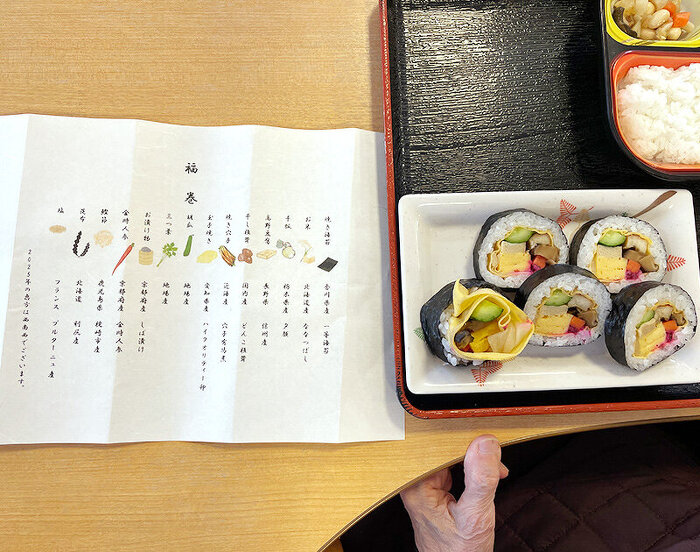 福巻
焼き海苔 香川県産 一等海苔
お米 北海道産 ななつぼし
干瓢 栃木県産 夕顔
高野豆腐 長野県 信州産
干し椎茸 国内産 どんこ椎茸
焼き穴子 近海産 穴子有馬煮
玉子焼き 愛知県産 ハイクオリティー卵
胡瓜 地場産
三つ葉 地場産
お漬け物 京都府産 しば漬け
金時人参 京都府産 金時人参
鰹節 鹿児島県 枕崎市産
昆布 北海道 利尻産
塩 フランス ブルターニュ産
2025年の恵方は西南西でございます。